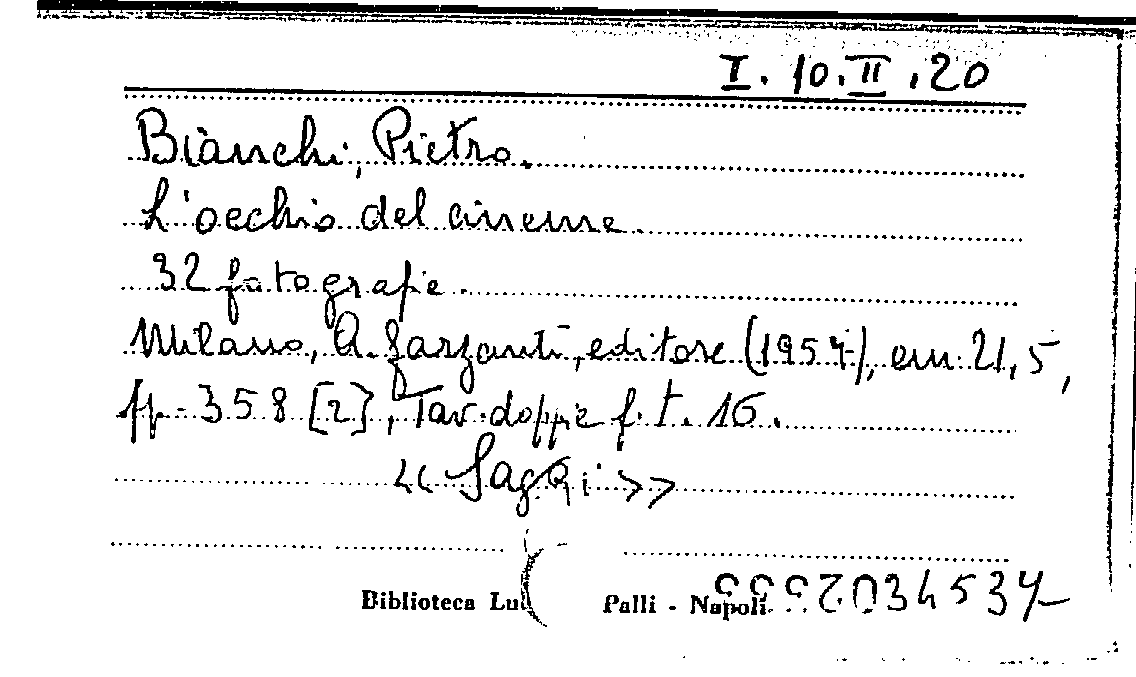 I. 10. II. 20
Bianchi, Pietro.
L'occhio del cinema.
32 fotografie.
Milano, A. Garzanti, editore (1957), cm. 21,5,
pp. 358 [2], Tav. doppie f. t. 16.
<< Saggi >>
Biblioteca Palli - Napoli